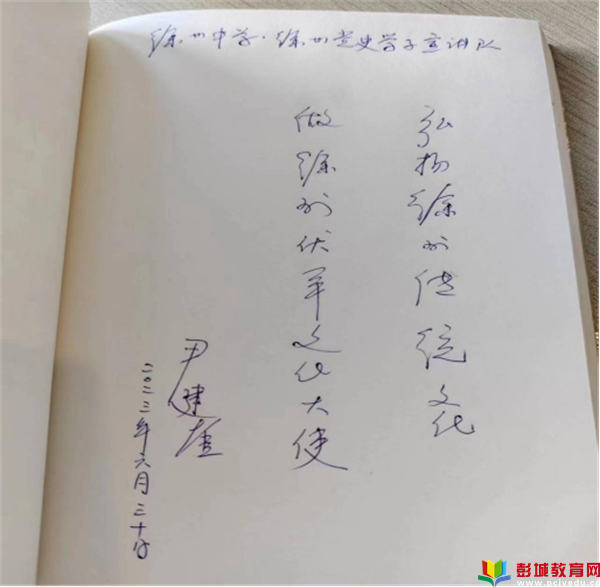 徐州中学·徐州党史学子宣讲队
弘扬徐州传统文化
做徐州伏羊文化大使
尹健
二〇二二年六月三十日
彭城教育网
www.pcjyedu.cn